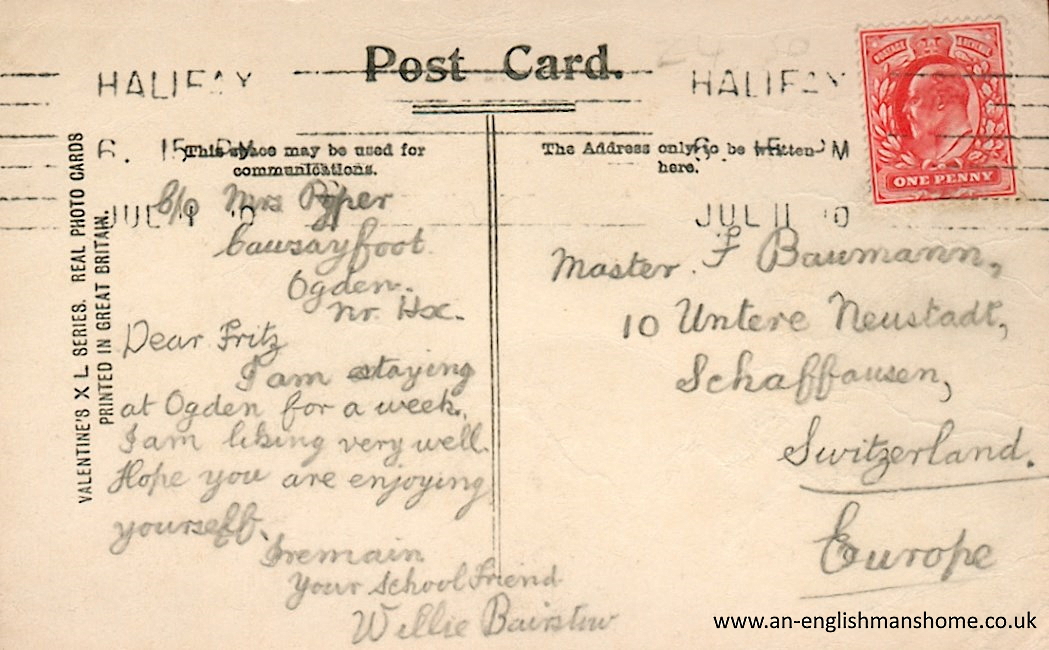 Post Card.
HALIFAX
6. 15 PM
JUL 11 10
HALIFAX
6. 15 PM
JUL 11 10
POSTAGE REVENUE
ONE PENNY
VALENTINE'S X L SERIES. REAL PHOTO CARDS
PRINTED IN GREAT BRITAIN.
This space may be used for
communications.
c/o Mrs Pyper
Causayfoot
Ogden.
nr. Hx.
Dear Fritz
I am staying
at Ogden for a week.
I am liking very well.
Hope you are enjoying
yourself.
I remain
Your School Friend
Willie Bairstow
The Address only to be written
here.
Master. F Baumann,
10 Untere Neustadt,
Schaffausen,
Switzerland.
Europe
www.an-englishmanshome.co.uk